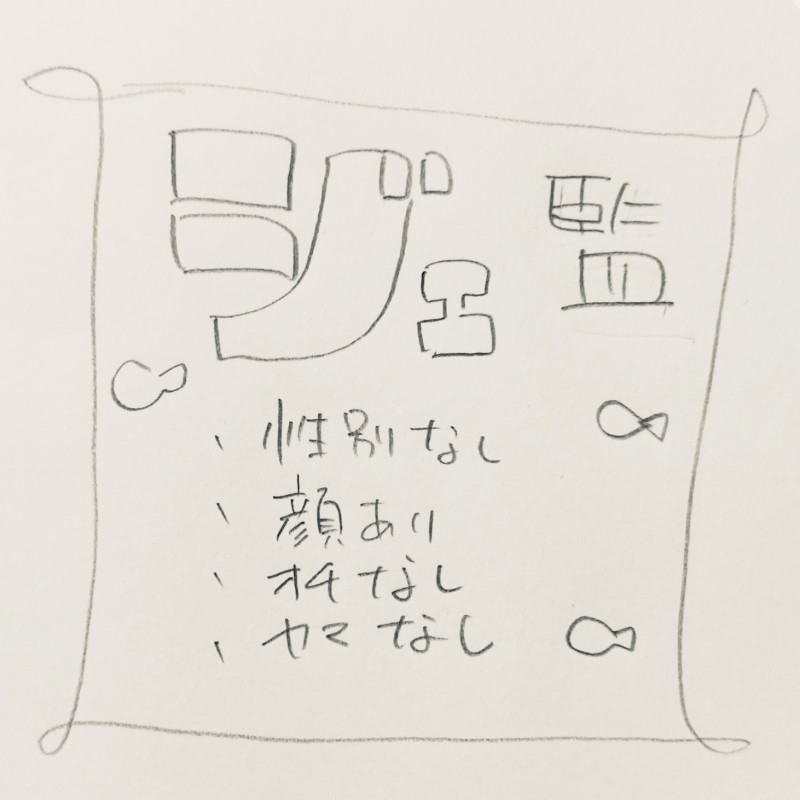 ジェ監
、性別なし
、顔あり
、オチなし
、ヤマなし